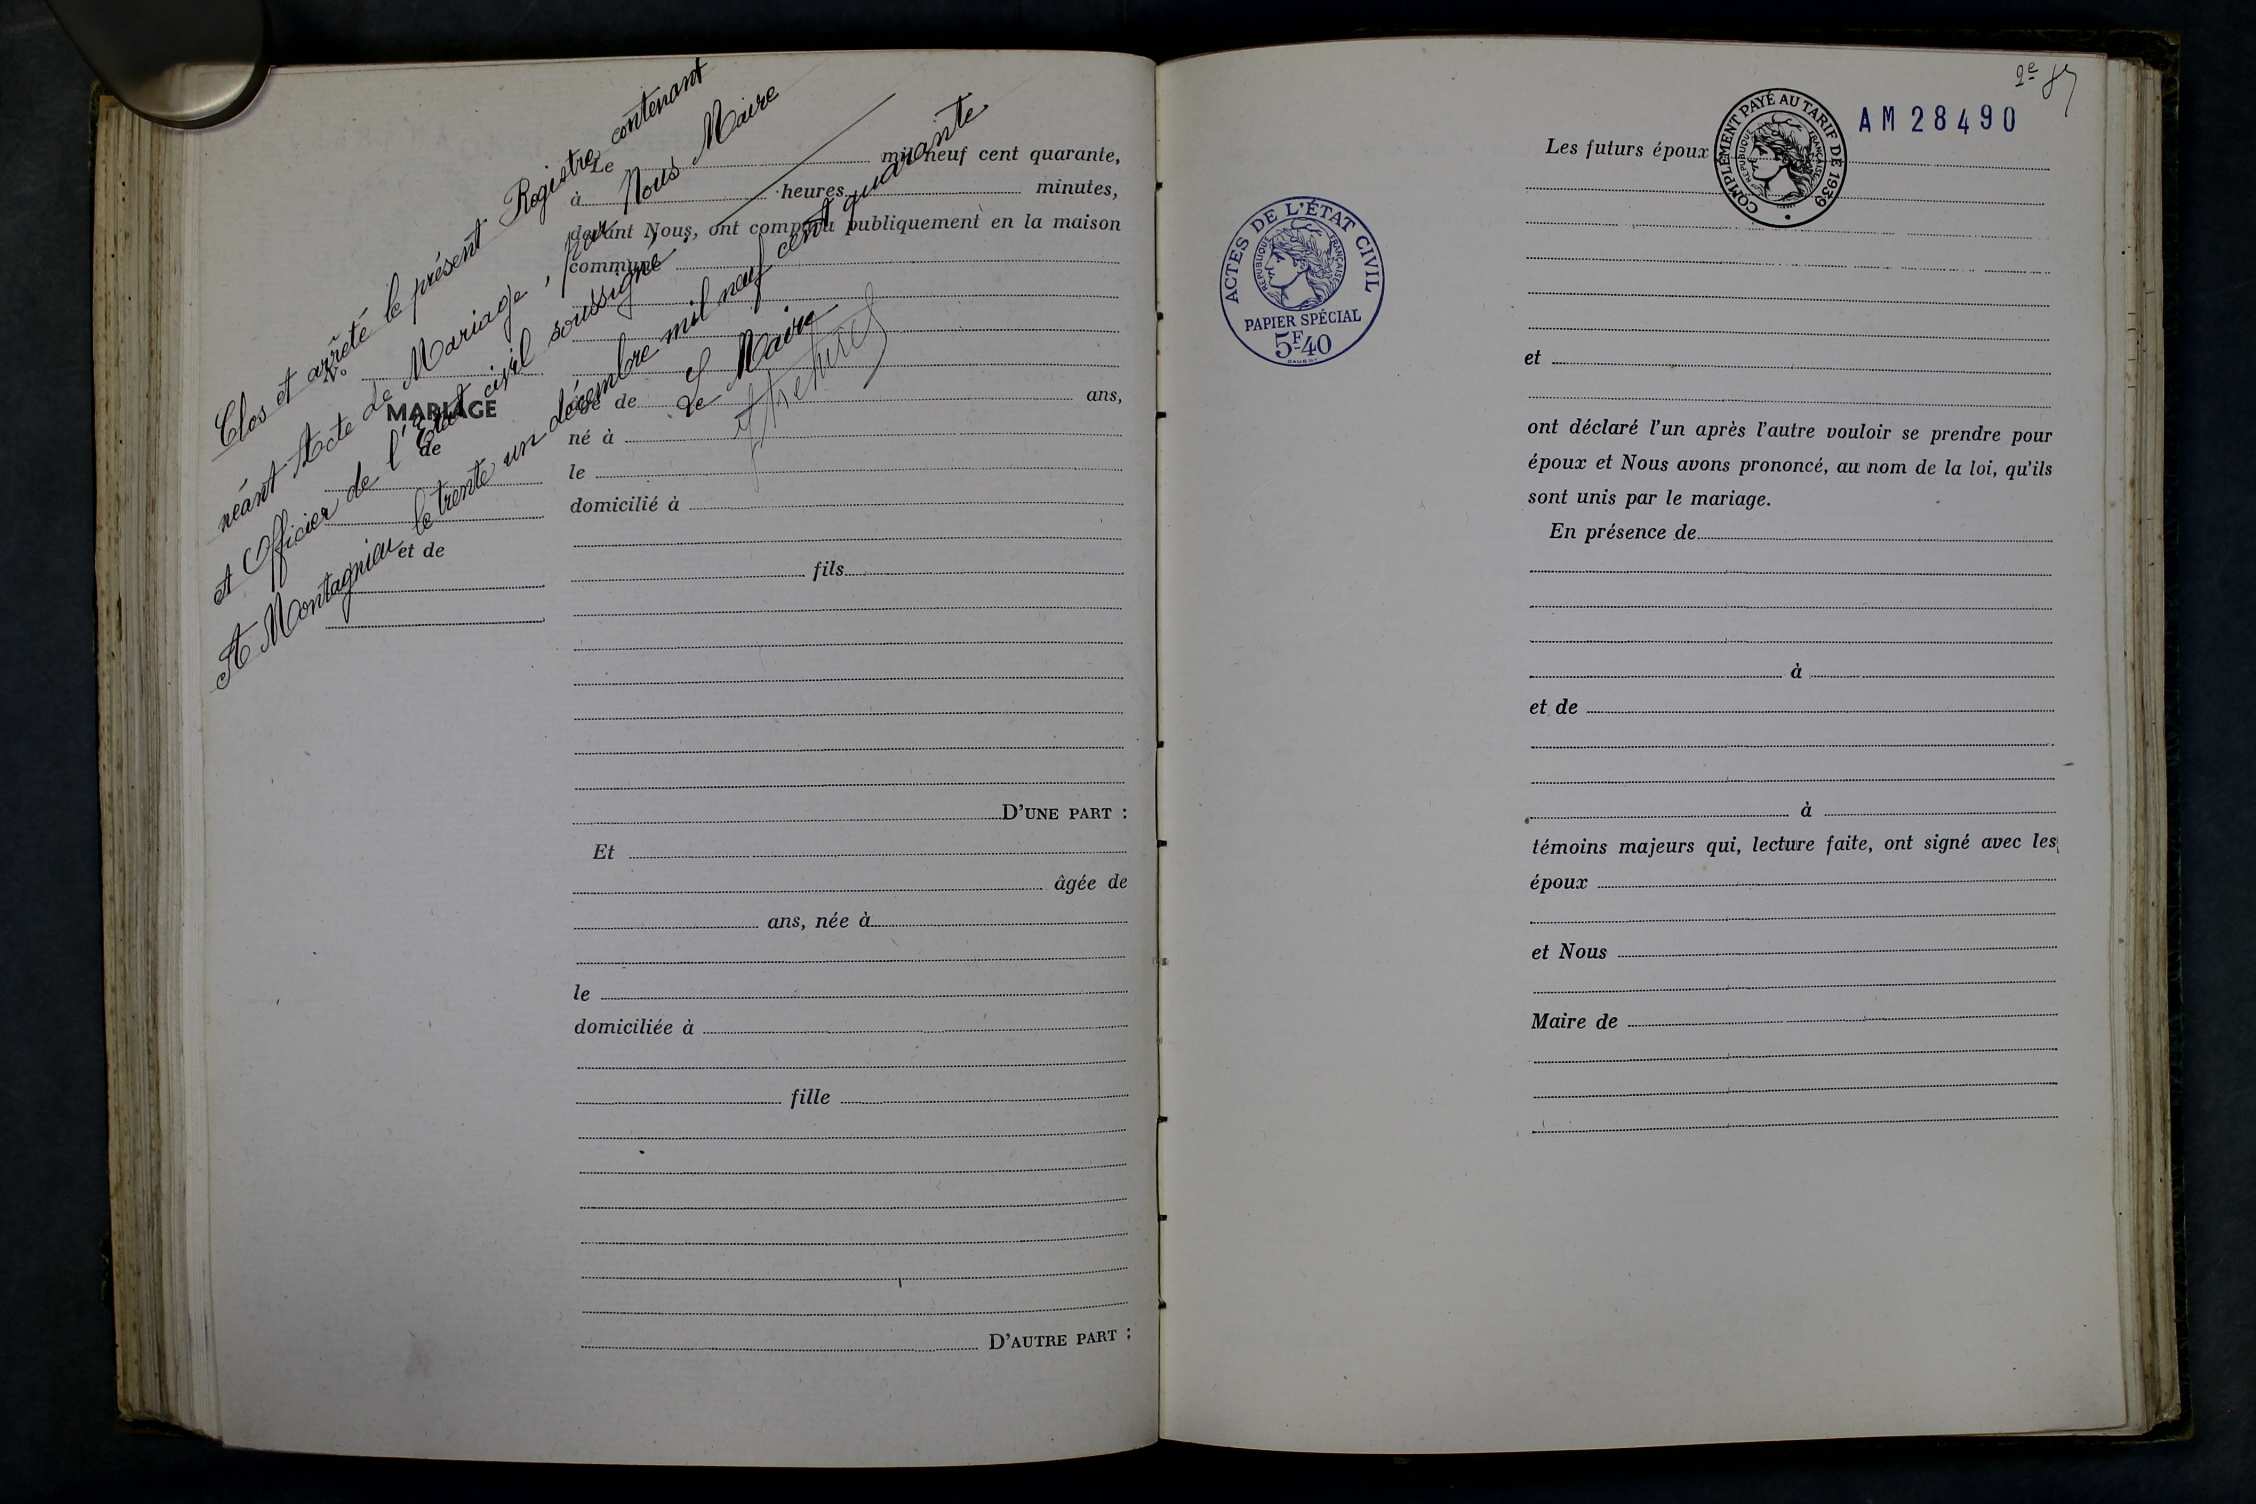 Clos et arrêté le présent Registre contenant
néant Acte de Mariage, par Nous Maire
et Officier de l'Etat civil soussigné,
A Montagnieu le trente un décembre mil neuf cent quarante
Le Maire
N°
MARIAGE
de
et de
Le mil neuf cent quarante,
à heures minutes,
devant Nous, ont comparu publiquement en la maison
commune
âgé de ans,
né à
le
domicilié à
fils
D'UNE PART :
Et
âgée de
ans, née à
le
domiciliée à
fille
D'AUTRE PART :
ACTES DE L'ÉTAT CIVIL
RÉPUBLIQUE FRANÇAISE
PAPIER SPÉCIAL
5F40
2e
COMPLÉMENT PAYÉ AU TARIF DE 1939
RÉPUBLIQUE FRANÇAISE
AM 28490
Les futurs époux
et
ont déclaré l'un après l'autre vouloir se prendre pour
époux et Nous avons prononcé, au nom de la loi, qu'ils
sont unis par le mariage.
En présence de
à
et de
à
témoins majeurs qui, lecture faite, ont signé avec les
époux
et Nous
Maire de